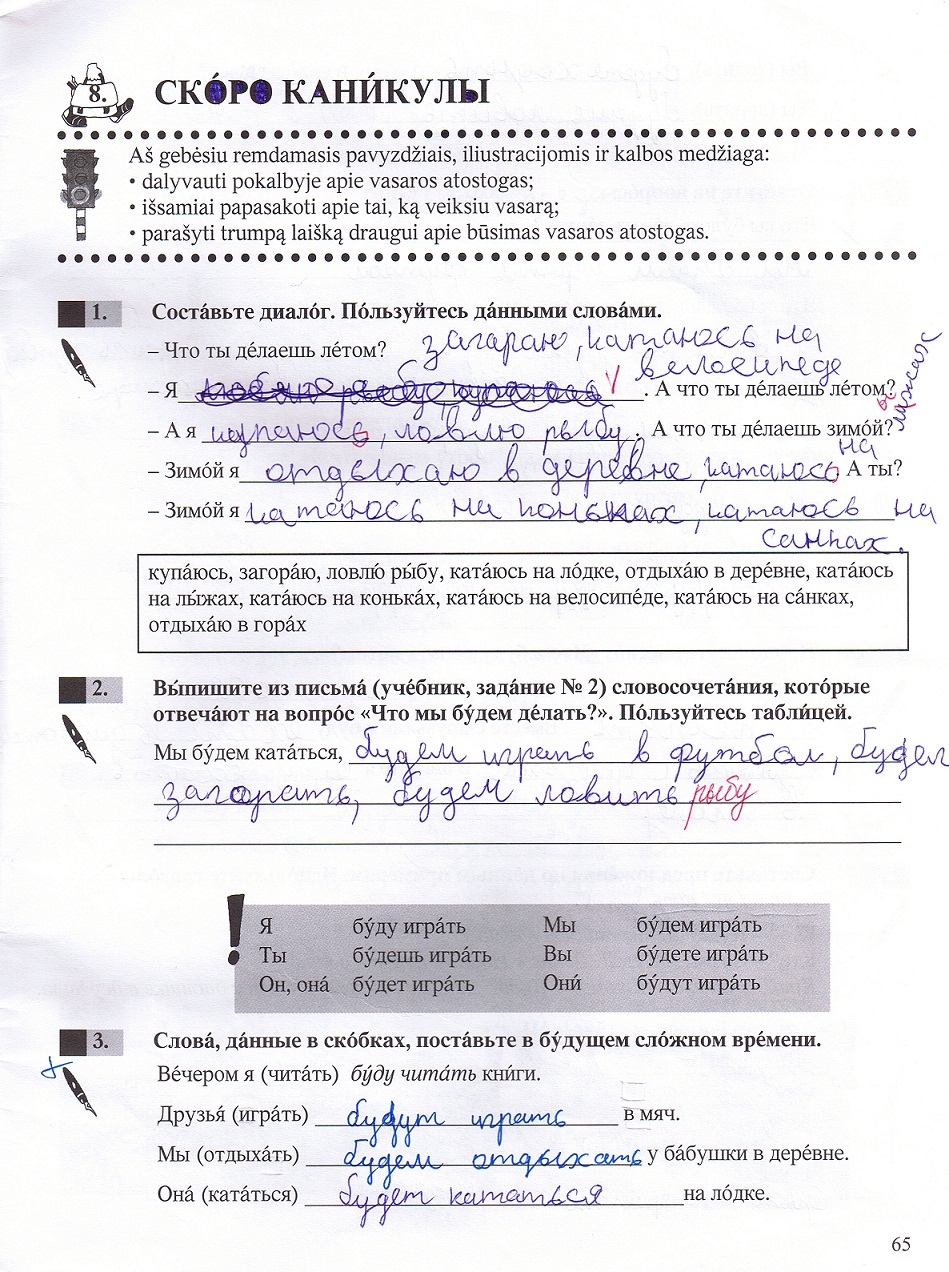 8.
СКО́РО КАНИ́КУЛЫ
Aš gebėsiu remdamasis pavyzdžiais, iliustracijomis ir kalbos medžiaga:
• dalyvauti pokalbyje apie vasaros atostogas;
• išsamiai papasakoti apie tai, ką veiksiu vasarą;
• parašyti trumpą laišką draugui apie būsimas vasaros atostogas.
1. Соста́вьте диало́г. По́льзуйтесь да́нными слова́ми.
– Что ты де́лаешь ле́том? загараю, катаюсь на
велосипеде
– Я . А что ты де́лаешь ле́том?
– А я купаюсь, ловлю рыбу. А что ты де́лаешь зимо́й?
на лыжах
– Зимо́й я отдыхаю в деревне, катаюсь А ты?
– Зимо́й я катаюсь на коньках, катаюсь на
санках.
купа́юсь, загора́ю, ловлю́ ры́бу, ката́юсь на ло́дке, отдыха́ю в дере́вне, ката́юсь
на лы́жах, ката́юсь на конька́х, ката́юсь на велосипе́де, ката́юсь на са́нках,
отдыха́ю в гора́х
2. Вы́пишите из письма́ (уче́бник, зада́ние № 2) словосочета́ния, кото́рые
отвеча́ют на вопро́с «Что мы бу́дем де́лать?». По́льзуйтесь табли́цей.
Мы бу́дем ката́ться, будем играть в футбол, будем
загорать, будем ловить рыбу
! Я бу́ду игра́ть Мы бу́дем игра́ть
Ты бу́дешь игра́ть Вы бу́дете игра́ть
Он, она́ бу́дет игра́ть Они́ бу́дут игра́ть
3. Слова́, да́нные в ско́бках, поста́вьте в бу́дущем сло́жном вре́мени.
Ве́чером я (чита́ть) бу́ду чита́ть кни́ги.
Друзья́ (игра́ть) будут играть в мяч.
Мы (отдыха́ть) будем отдыхать у ба́бушки в дере́вне.
Она́ (ката́ться) будет кататься на ло́дке.
65